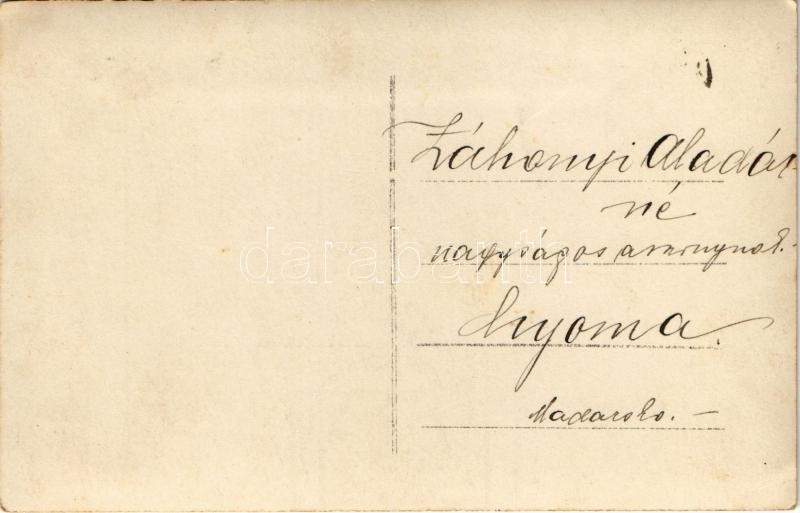 Záhonyi Aladár-
né
nagyságos asszonynak.-
Gyoma.
Madarsko. -
darabanth